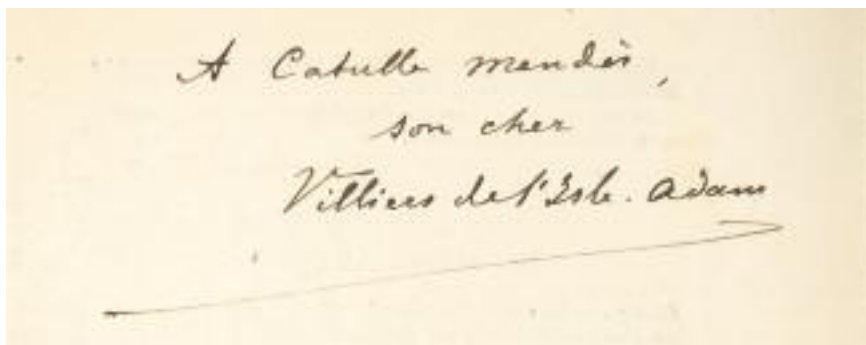 A Catulle Mendès,
son cher
Villiers de l'Isle-Adam